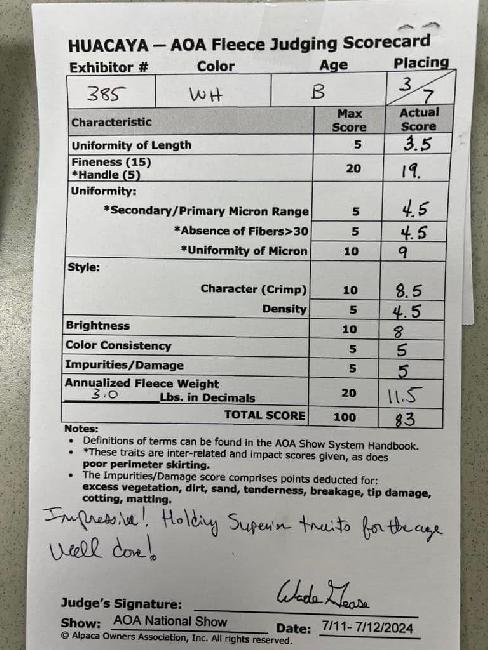 HUACAYA — AOA Fleece Judging Scorecard
Exhibitor # Color Age Placing
385 WH B 3/7
Characteristic Max Score Actual Score
Uniformity of Length 5 3.5
Fineness (15)
*Handle (5) 20 19.
Uniformity:
*Secondary/Primary Micron Range 5 4.5
*Absence of Fibers>30 5 4.5
*Uniformity of Micron 10 9
Style:
Character (Crimp) 10 8.5
Density 5 4.5
Brightness 10 8
Color Consistency 5 5
Impurities/Damage 5 5
Annualized Fleece Weight
3.0 Lbs. in Decimals 20 11.5
TOTAL SCORE 100 83
Notes:
• Definitions of terms can be found in the AOA Show System Handbook.
• *These traits are inter-related and impact scores given, as does
poor perimeter skirting.
• The Impurities/Damage score comprises points deducted for:
excess vegetation, dirt, sand, tenderness, breakage, tip damage,
cotting, matting.
Impressive! Holding Superior traits for the age
Well done!
Judge's Signature: Wade Gease
Show: AOA National Show Date: 7/11- 7/12/2024
© Alpaca Owners Association, Inc. All rights reserved.